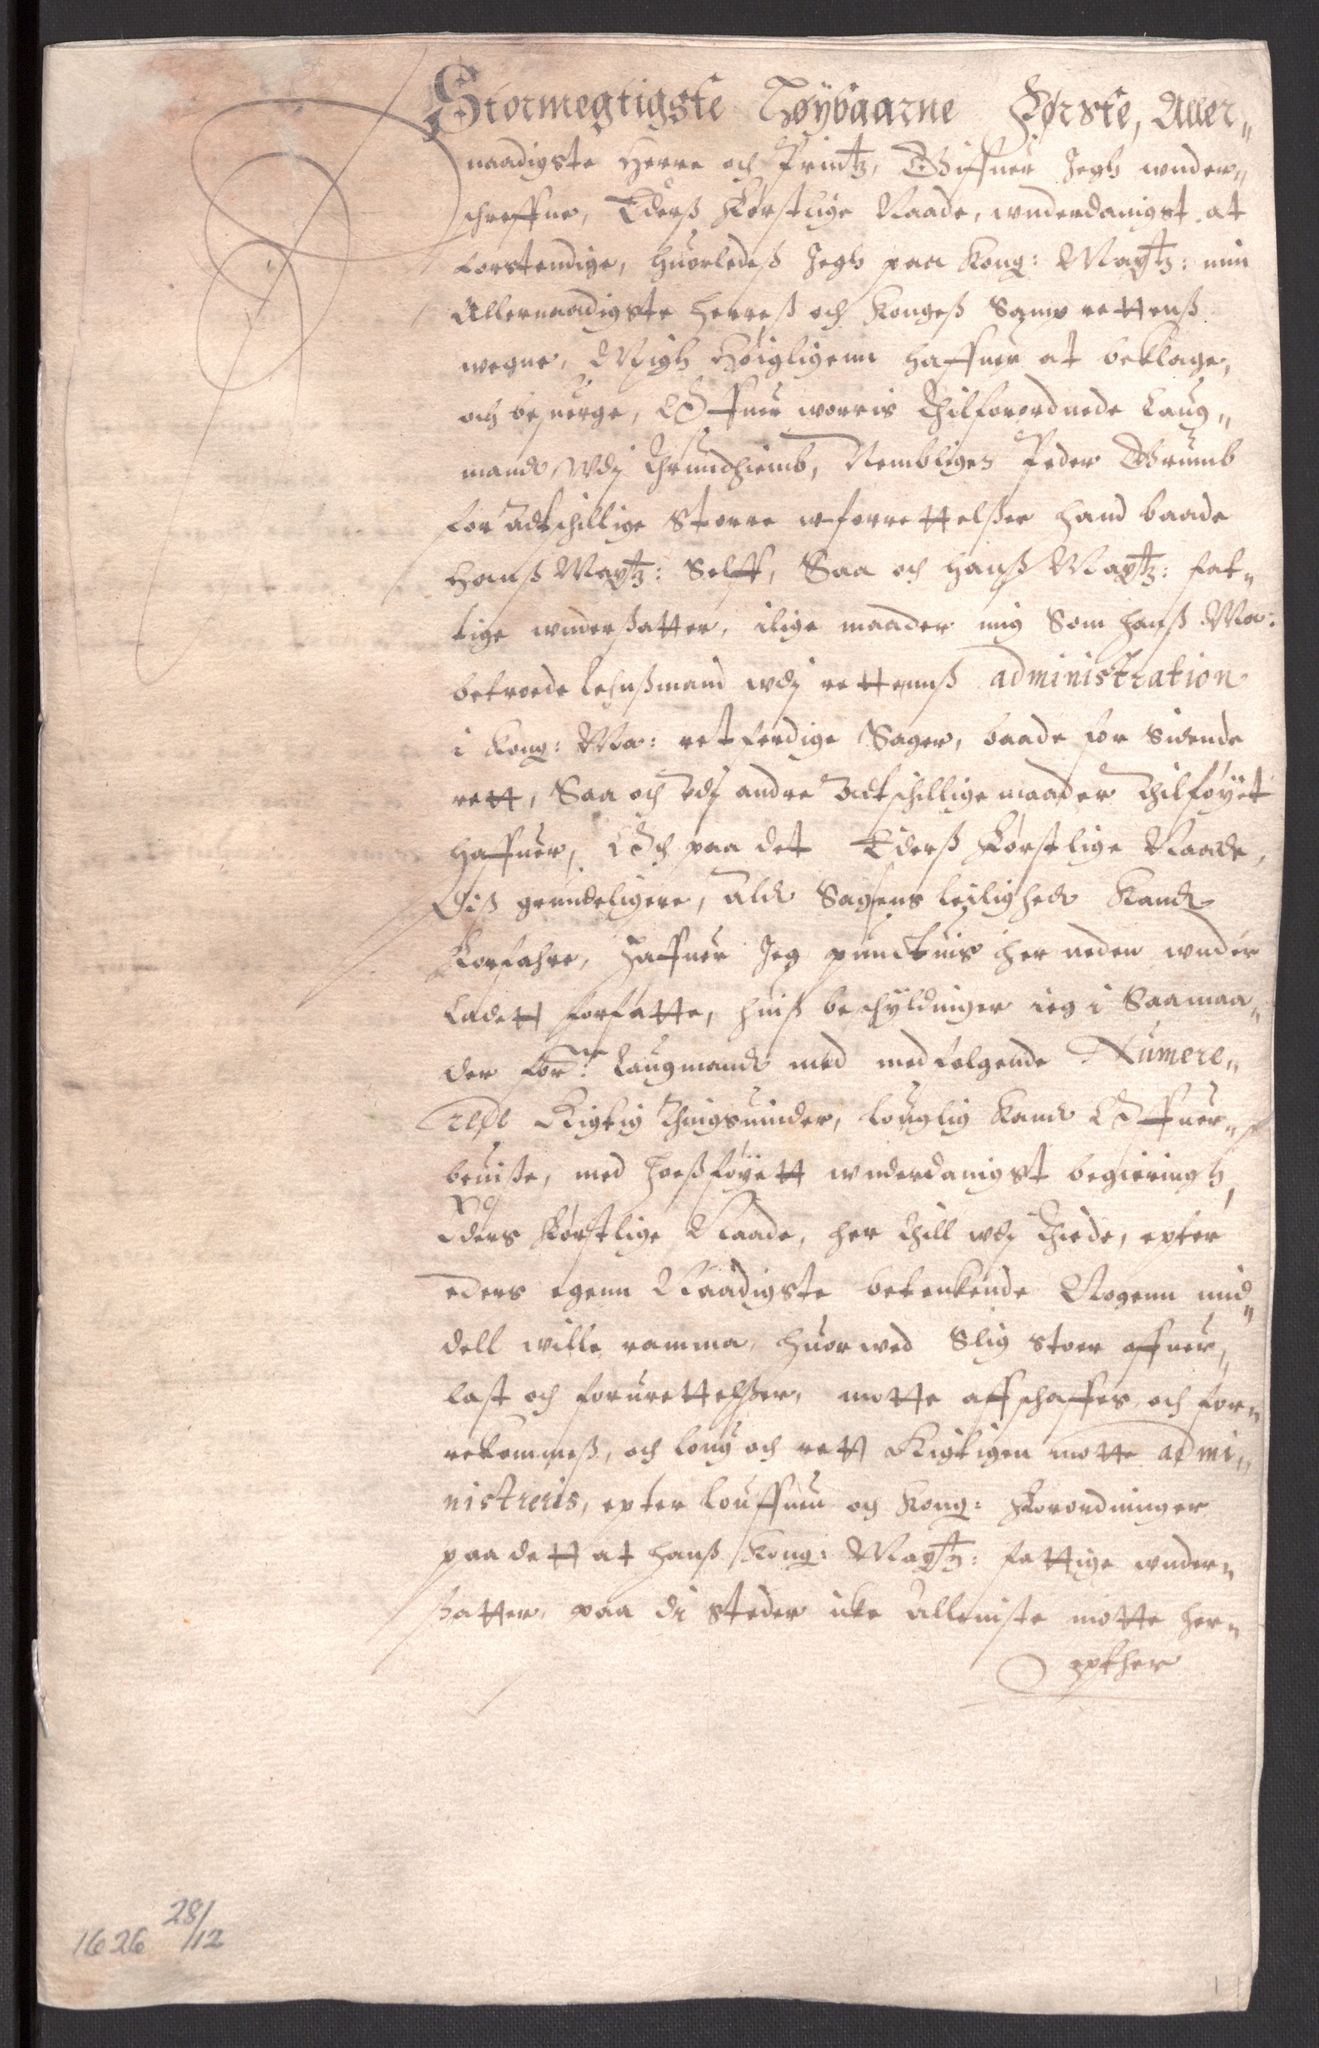 Stormegtigste Høybaarne Første, Aller-
naadigste Herre och Printz, Giffuer Jegh wnder-
schreffne, Ederß Førstlige Naade, wnderdanigst at
forstendige, huorledeß Jegh paa Kong: Maytz: min
Allernaadigste Herreß och Kongeß Samt rettenß
wegne, Migh Høigligenn haffuer at beklage,
och besuerge, Offuer worris Thilforordnede Laug-
mand, Wdj Thrundhiemb, Nembligen Peder Grumb
for Adtschillige Storre wforrettelßer hand baade
Hanß Maytz: Selff, Saa och Hanß Maytz: fat-
tige wnderßatter, ilige maader mig Som hanß Ma:
betroede Lehnßmand wdj rettenß administration
i Kong: Ma: retferdige Sager, baade for Sidende
rett, Saa och vdj andre Adtschillige maader Thilføyet
haffuer, Och paa det Ederß Førstlige Naade,
Diß grundeligere, Ald Sagens leilighed Kand
Forfahre, Haffuer Jeg punctuis her neden wnder
Ladett forfatte, huiß beschyldinger ieg i Saamaa-
der for:ne Laugmand med medfølgende Numere-
rede Rigtig Thingsuinder, louglig Kand Offuer-
beuiße, med Hoeßføyett wnderdanigst begieringh,
Eders Førstlige Naade, her Thill wdj Thiide, epter
eders egenn Naadigste betenkende Nogenn mid-
dell wille ramma, huor wed Slig stoer offuer-
last och foruretteltßer, motte affschaffes och for-
rekommeß, och loug och rett Rigtigen motte admi-
nistreris, epter Louffuen og Kong: Forordninger
paa dett at hanß Kong: Maytz: fattige wnder-
ßatter, paa di steder icke Alleniste motte her-
epther
1626 28/12
1